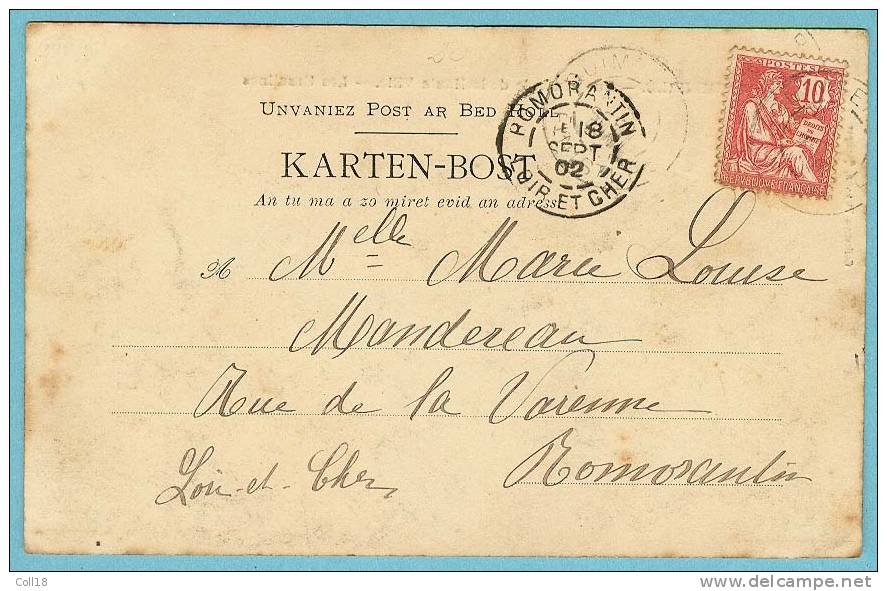 UNVANIEZ POST AR BED HOLL
KARTEN-BOST
An tu ma a zo miret evid an adress
ROMORANTIN
18
SEPT
02
LOIR ET CHER
POSTES
10
DROITS DE L'HOMME
REPUBLIQUE FRANÇAISE
A Melle Marie Louise
Mandereau
Rue de la Varenne
Romorantin
Loir-et-Cher
Coll18
www.delcampe.net